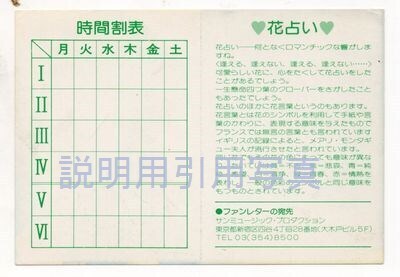 時間割表
月 火 水 木 金 土
I
II
III
IV
V
VI
♥花占い♥
花占い――何となくロマンチックな響がしますね。
〈逢える、逢えない、逢える、逢えない……〉
可愛らしい花に、心をたくして花占いをしたことがあるでしょう。
一生懸命四つ葉のクローバーをさがしたこともあったでしょう。
花占いのほかに花言葉というのもあります。
花言葉とは花のシンボルを利用して手紙や言葉のかわりに、表現する意味を与えたもので
フランスでは無言の言葉とも言われています
イギリスの記録によると、メアリ・モンタギュー夫人が流行させたと言われています。
説明用引用写真
●ファンレターの宛先
サンミュージック・プロダクション
東京都新宿区四谷4丁目28番地(大木戸ビル5F)
TEL 03(354)8500